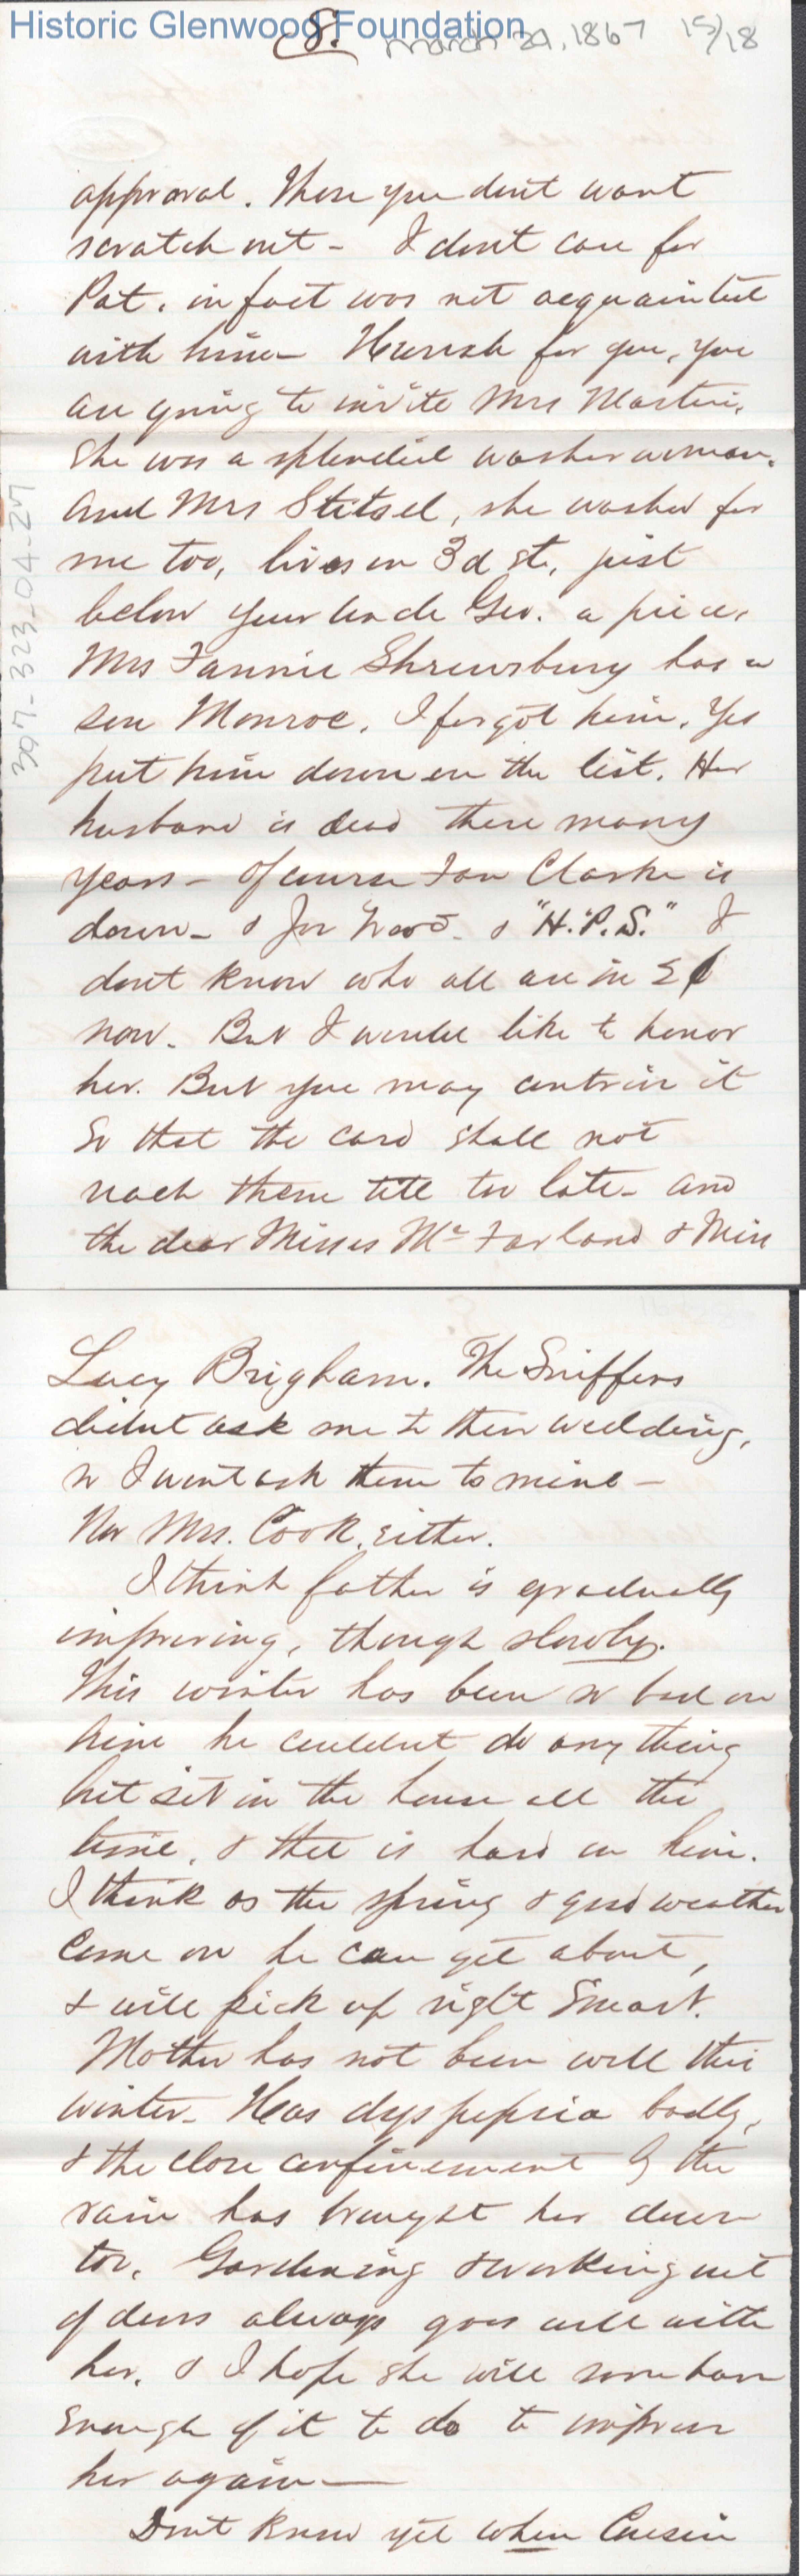 Historic Glenwood Foundation
8. March 29, 1867 15/18
approval. Those you dont want
scratch out - I dont care for
Pat. in fact was not acquainted
with him - Hurrah for you, you
are going to invite Mrs Martin.
She was a splendid washerwoman.
And Mrs Stitsel, she washed for
me too, lives on 3d st, just
below your Uncle Geo. a piece.
Mrs Fannie Shrewsbury has a
son Monroe. I forgot him. Yes
put him down on the list. Her
husband is dead these many
years - Of course Ion Clarke is
down - & Joe Wood - & "H.P.S." I
dont know who all are in
now. But I would like to honor
her. But you may contrive it
so that the card shall not
reach them till too late - and
the dear Misses McFarland & Miss
307-323-04-27
Lucy Brigham. The Sniffens
didnt ask me to their wedding,
so I wont ask them to mine -
Nor Mrs. Cook, either.
I think father is gradually
improving, though slowly.
This winter has been so bad on
him he couldnt do any thing
but sit in the house all the
time, & that is hard on him.
I think as the spring & good weather
come on he can get about,
& will pick up right smart.
Mother has not been well this
winter - Has dyspepsia badly,
& the close confinement by the
rain has brought her down
too. Gardening & working out
of doors always goes well with
her, & I hope she will soon have
enough of it to do to improve
her again -
Dont know yet when Cousin